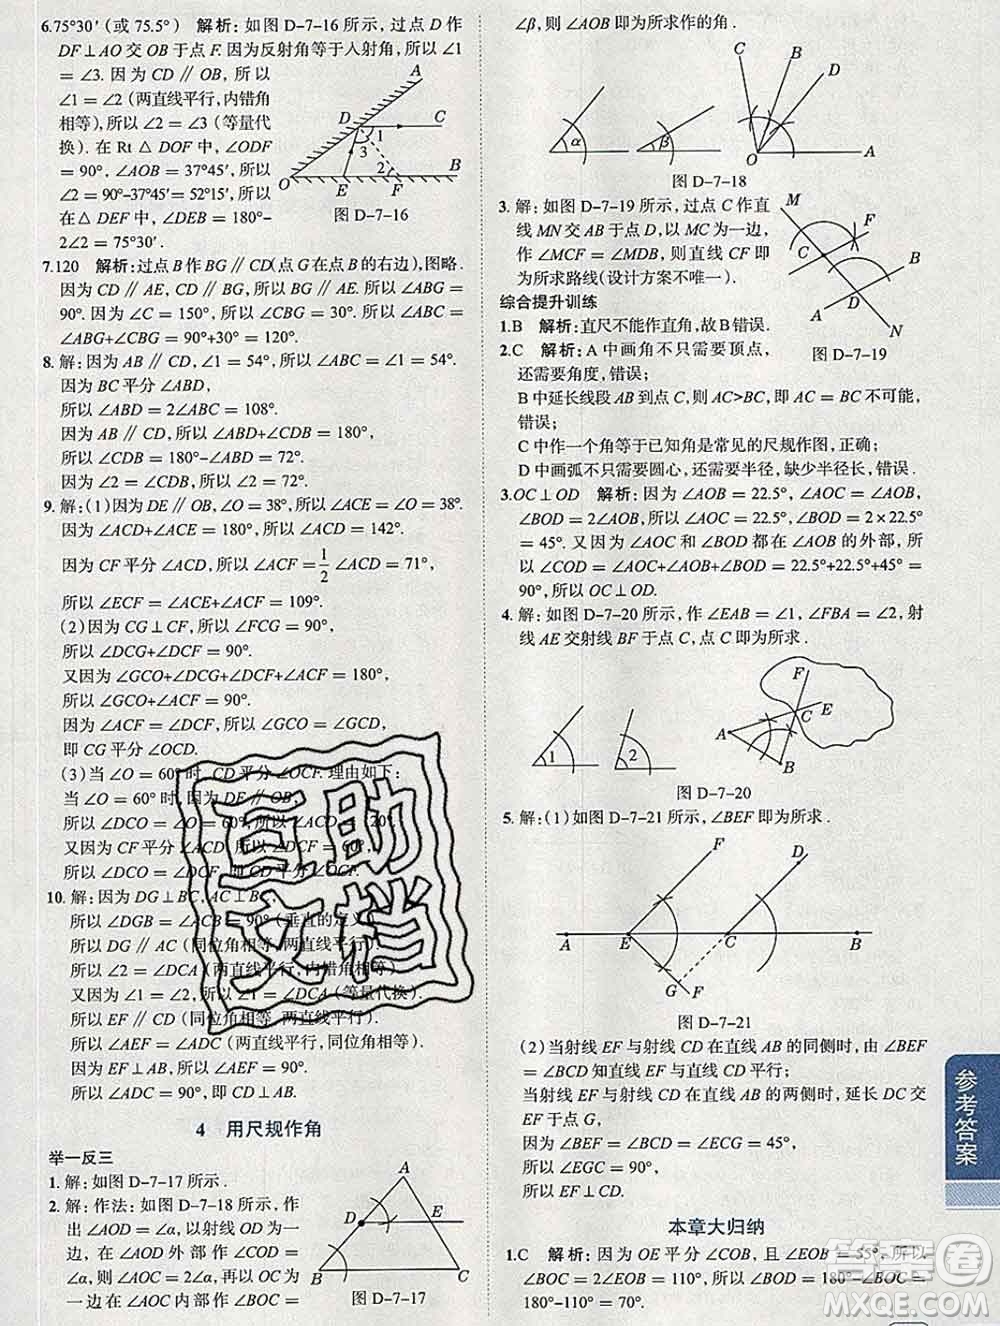 6.75°30′(或 75.5°)　解析:如图 D-7-16 所示，过点 D 作
DF⊥AO 交 OB 于点 F. 因为反射角等于入射角，所以∠1
=∠3. 因为 CD∥OB, 所以
∠1=∠2(两直线平行，内错角
相等)，所以∠2=∠3(等量代
换). 在 Rt△DOF 中，∠ODF
=90°，∠AOB=37°45′，所以∠2
=90°-37°45′=52°15′. 所以
在△DEF 中，∠DEB=180°-
2∠2=75°30′.
A
D
C
1
3
2
O
E
F
B
图 D-7-16
7.120　解析:过点 B 作 BG∥CD(点 G 在点 B 的右边),图略.
因为 CD∥AE, CD∥BG, 所以 BG∥AE. 所以∠ABG=
90°. 因为∠C=150°, 所以∠CBG=30°. 所以∠ABC=
∠ABG+∠CBG=90°+30°=120°.
8. 解:因为 AB∥CD，∠1=54°，所以∠ABC=∠1=54°.
因为 BC 平分∠ABD,
所以∠ABD=2∠ABC=108°.
因为 AB∥CD，所以∠ABD+∠CDB=180°,
所以∠CDB=180°-∠ABD=72°.
因为∠2=∠CDB，所以∠2=72°.
9. 解:(1)因为 DE∥OB, ∠O=38°,所以∠ACE=∠O=38°.
因为∠ACD+∠ACE=180°,所以∠ACD=142°.
因为 CF 平分∠ACD,所以∠ACF=1/2∠ACD=71°,
所以∠ECF=∠ACE+∠ACF=109°.
(2)因为 CG⊥CF,所以∠FCG=90°,
所以∠DCG+∠DCF=90°.
又因为∠GCO+∠DCG+∠DCF+∠ACF=180°,
所以∠GCO+∠ACF=90°.
因为∠ACF=∠DCF,所以∠GCO=∠GCD,
即 CG 平分∠OCD.
(3)当∠O=60°时, CD 平分∠OCF. 理由如下:
当∠O=60°时,因为 DE∥OB,
所以∠DCO=∠O=60°,所以∠ACD=120°.
又因为 CF 平分∠ACD,所以∠DCF=60°,
所以∠DCO=∠DCF,即 CD 平分∠OCF.
10. 解:因为 DG⊥BC, AC⊥BC,
所以∠DGB=∠ACB=90°(垂直的定义),
所以 DG∥AC(同位角相等,两直线平行),
所以∠2=∠DCA(两直线平行,内错角相等).
因为∠1=∠2,所以∠1=∠DCA(等量代换).
所以 EF∥CD(同位角相等,两直线平行).
所以∠AEF=∠ADC(两直线平行,同位角相等).
因为 EF⊥AB,所以∠AEF=90°,
所以∠ADC=90°,所以 CD⊥AB.
4　用尺规作角
举一反三
1. 解:如图 D-7-17 所示.
2. 解:作法:如图 D-7-18 所示，作
出∠AOD=∠α, 以射线 OD 为
一边在∠AOD 外部作∠COD
=∠α, 则∠AOC=2∠α; 以 OC 为
一边在∠AOC 内部作∠BOC=
A
D
E
B
C
图 D-7-17
∠β, 则∠AOB 即为所求作的角.
α
β
C
B
D
O
A
图 D-7-18
3. 解:如图 D-7-19 所示，过点 C 作直
线 MN 交 AB 于点 D, 以 MC 为一边,
作∠MCF=∠MDB, 则直线 CF 即
为所求路线(设计方案不唯一).
M
F
C
B
A
D
N
图 D-7-19
综合提升训练
1.B　解析:直尺不能作直角,故 B 错误.
2.C　解析:A 中画角不只需要顶点,
还需要角度，错误;
B 中延长线段 AB 到点 C, 则 AC>BC, 即 AC=BC 不可能,
错误;
C 中作一个角等于已知角是常见的尺规作图，正确;
D 中画弧不只需要圆心，还需要半径，缺少半径长，错误.
3.OC⊥OD　解析:因为∠AOB=22.5°, ∠AOC=∠AOB,
∠BOD=2∠AOB, 所以∠AOC=22.5°, ∠BOD=2×22.5°
=45°. 又因为∠AOC 和∠BOD 都在∠AOB 的外部，所
以∠COD=∠AOC+∠AOB+∠BOD=22.5°+22.5°+45°=
90°, 所以 OC⊥OD.
4. 解:如图 D-7-20 所示，作∠EAB=∠1，∠FBA=∠2，射
线 AE 交射线 BF 于点 C，点 C 即为所求.
1
2
F
C
E
A
B
图 D-7-20
5. 解:(1)如图 D-7-21 所示，∠BEF 即为所求.
F
D
A
E
C
B
G
F
图 D-7-21
(2)当射线 EF 与射线 CD 在直线 AB 的同侧时，由∠BEF
=∠BCD 知直线 EF 与直线 CD 平行;
当射线 EF 与射线 CD 在直线 AB 的两侧时，延长 DC 交
EF 于点 G,
因为∠BEF=∠BCD=∠ECG=45°,
所以∠EGC=90°,
所以 EF⊥CD.
本章大归纳
1.C　解析:因为 OE 平分∠COB, 且∠EOB=55°, 所以
∠BOC=2∠EOB=110°, 所以∠BOD=180°-∠BOC=
180°-110°=70°.
参考答案
互助
文档
答案圈
MXQE.COM